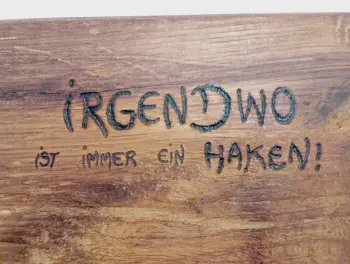 iRGENDWO
iST iMMER EiN HAKEN!